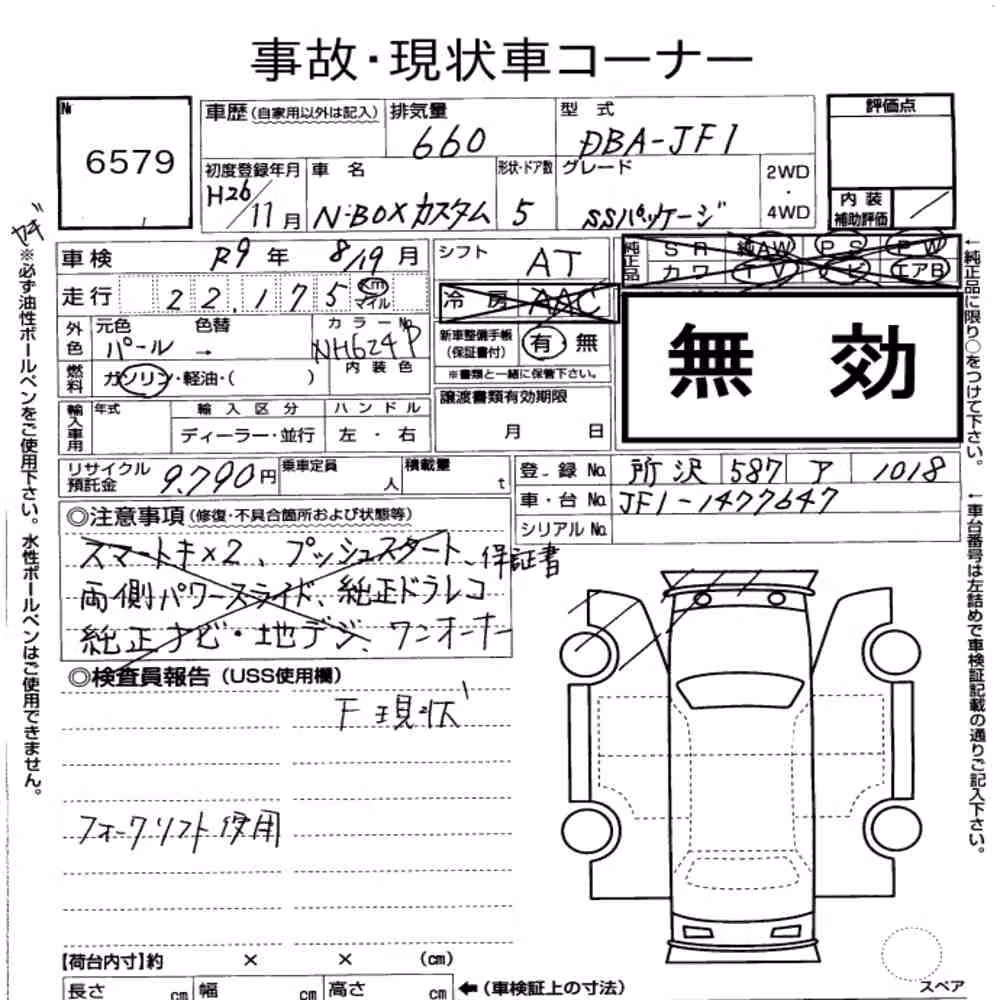 事故・現状車コーナー
№ 6579
車歴（自家用以外は記入） 排気量 660 型式 DBA-JF1 評価点
初度登録年月 H26/11月 車名 N-BOXカスタム 形状・ドア数 5 グレード SSパッケージ 2WD・4WD 内装補助評価 ／
車検 R9年 8/19月 シフト AT 純正品 SR 純AW PS PW
走行 22,175 Km マイル 冷房 AAC カワ TV ナビ エアB
外色 元色 パール 色替 → カラーNo. NH624P 新車整備手帳（保証書付） 有・無
内装色 ※書類と一緒に保管下さい。
無効
燃料 ガソリン・軽油・（ ）
譲渡書類有効期限 月 日
輸入車用 年式 輸入区分 ハンドル
ディーラー・並行 左・右
リサイクル預託金 9,790円 乗車定員 人 積載量 t
登録No. 所沢 587 ア 1018
車台No. JF1-1477647
シリアルNo.
◎注意事項（修復・不具合箇所および状態等）
スマートキ×2、プッシュスタート、保証書
両側パワースライド、純正ドラレコ
純正ナビ・地デジ、ワンオーナー
◎検査員報告（USS使用欄）
下 現状
フォークリフト使用
【荷台内寸】約 × × （cm）
長さ cm 幅 cm 高さ cm ←（車検証上の寸法）
スペア
ヤギ
※必ず油性ボールペンをご使用下さい。水性ボールペンはご使用できません。
←純正品に限り○をつけて下さい。
←車台番号は左詰めで車検証記載の通りご記入下さい。